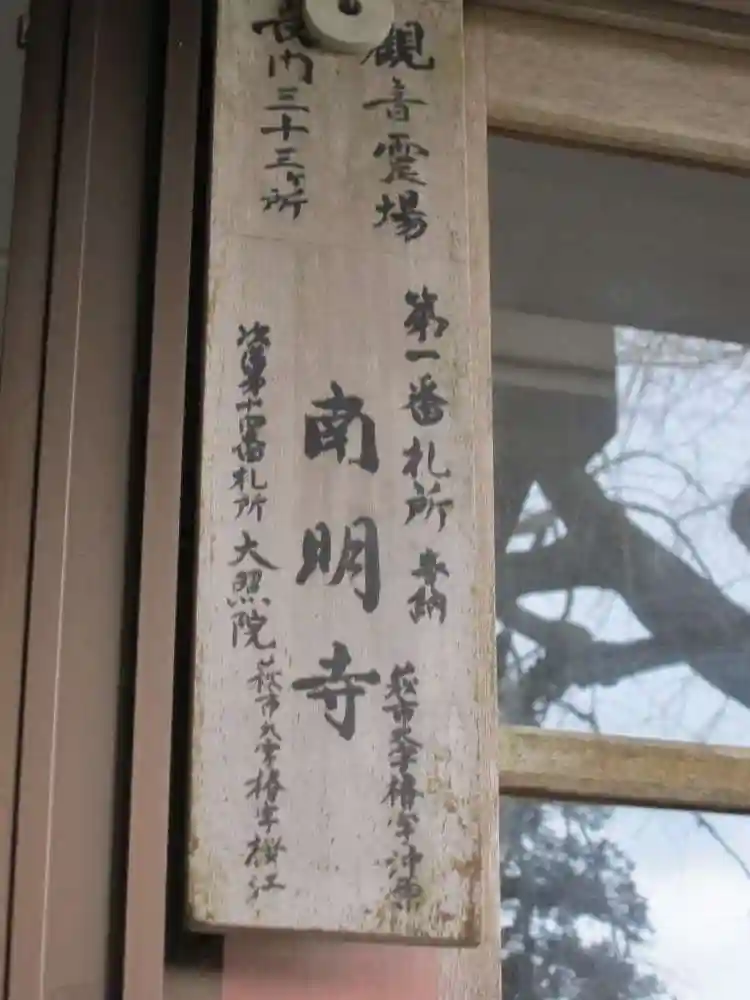 観音震場
長門三十三ヶ所
第一番札所 奉納
萩市大字椿字沖原
南明寺
次は第十四番札所 大照院
萩市大字椿字桜江